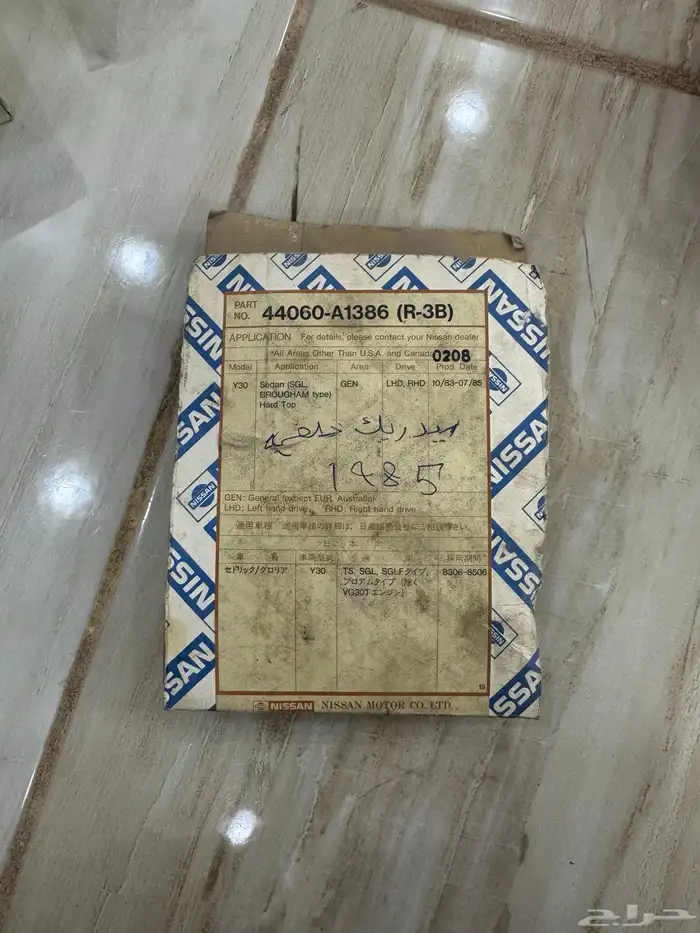 PART NO. 44060-A1386 (R-3B)
APPLICATION For details, please contact your Nissan dealer.
*All Areas Other Than U.S.A. and Canada 0208
Model Application Area Drive Prod. Date
Y30 Sedan (SGL, BROUGHAM type) Hard Top GEN LHD, RHD 10/83-07/85
سيدريك خلفيه
1985
GEN: General (except EUR, Australia)
LHD: Left hand drive RHD: Right hand drive
適用車種 適用車種の詳細は、日産販売会社にご相談下さい。
日本
車名 車両型式 採用期間
セドリック/グロリア Y30 TS, SGL, SGLFタイプ, ブロアムタイプ (除く VG30Tエンジン) 8306-8506
19
NISSAN NISSAN MOTOR CO., LTD.
NISSAN
NISSAN
NISSAN
NISSAN
حراج